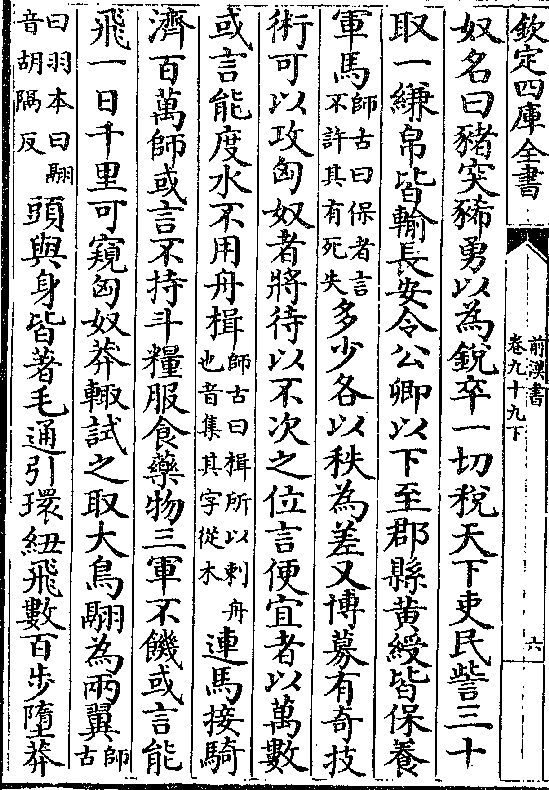 欽定四庫全書
前漢書
卷九十九下
六
奴名曰豬突豨勇以為鋭卒一切稅天下吏民訾三十
取一縑帛皆輸長安令公卿以下至郡縣黄綬皆保養
軍馬師古曰保者言不許其有死失多少各以秩為差又博募有奇技
術可以攻匈奴者將待以不次之位言便宜者以萬數
或言能度水不用舟楫師古曰楫所以刺舟也音集其字從木連馬接騎
濟百萬師或言不持斗糧服食藥物三軍不饑或言能
飛一日千里可窺匈奴莽輙試之取大鳥翮為兩翼師古
曰羽本曰翮音胡隔反頭與身皆著毛通引環紐飛數百步墮莽